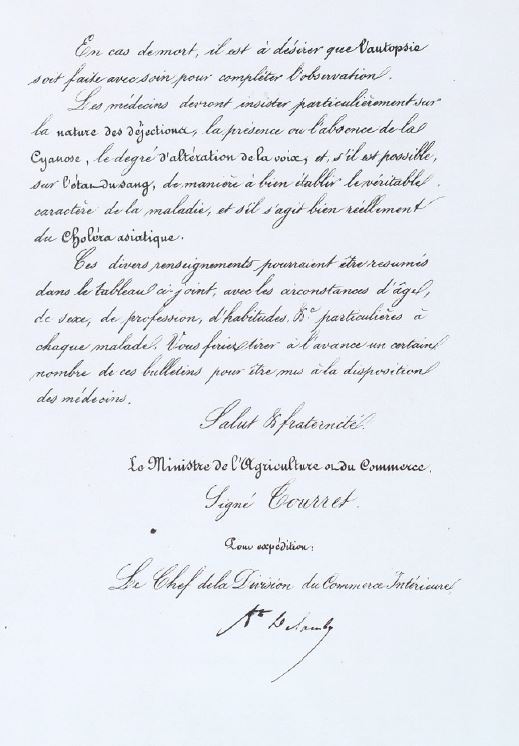 En cas de mort, il est à désirer que l'autopsie
soit faite avec soin pour compléter l'observation.
Les médecins devront insister particulièrement sur
la nature des déjections, la présence ou l'absence de la
Cyanose, le degré d'altération de la voix, et, s'il est possible,
sur l'état du sang, de manière à bien établir le véritable
caractère de la maladie, et s'il s'agit bien réellement
du Choléra asiatique.
Ces divers renseignements pourraient être resumés
dans le tableau ci-joint, avec les circonstances d'âge,
de sexe, de profession, d'habitudes &a particulières à
chaque malade. Vous feriez tirer à l'avance un certain
nombre de ces bulletins pour être mis à la disposition
des médecins.
Salut & fraternité.
Le Ministre de l'Agriculture et du Commerce.
Signé Tourret.
Pour expédition:
Le Chef de la Division du Commerce Intérieure,